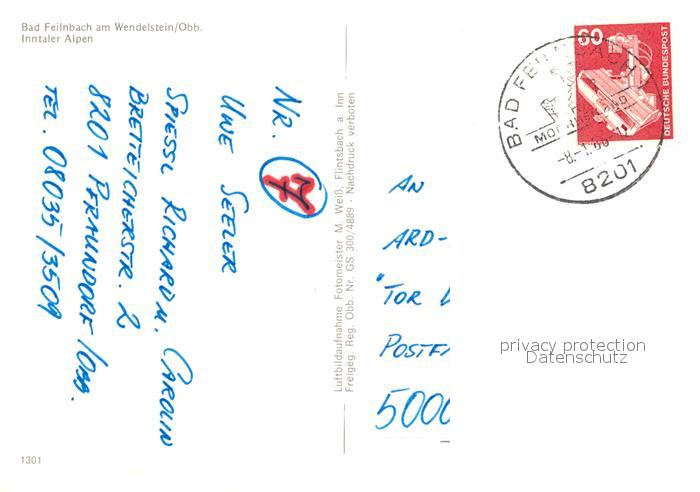 Bad Feilnbach am Wendelstein/Obb.
Inntaler Alpen
NR. 7
UWE SEELER
SPIESSL RICHARD U. CAROLIN
BRETTEICHERSTR. 2
8201 PFRAUNDORF/OBB.
TEL. 08035/3509
1301
Luftbildaufnahme Fotomeister M. Weiß, Flintsbach a. Inn
Freigeg. Reg. Obb. Nr. GS 300/4889 - Nachdruck verboten
60
DEUTSCHE BUNDESPOST
BAD FEILNBACH
8201
AN
ARD-
"TOR
POSTF
5000
privacy protection
Datenschutz